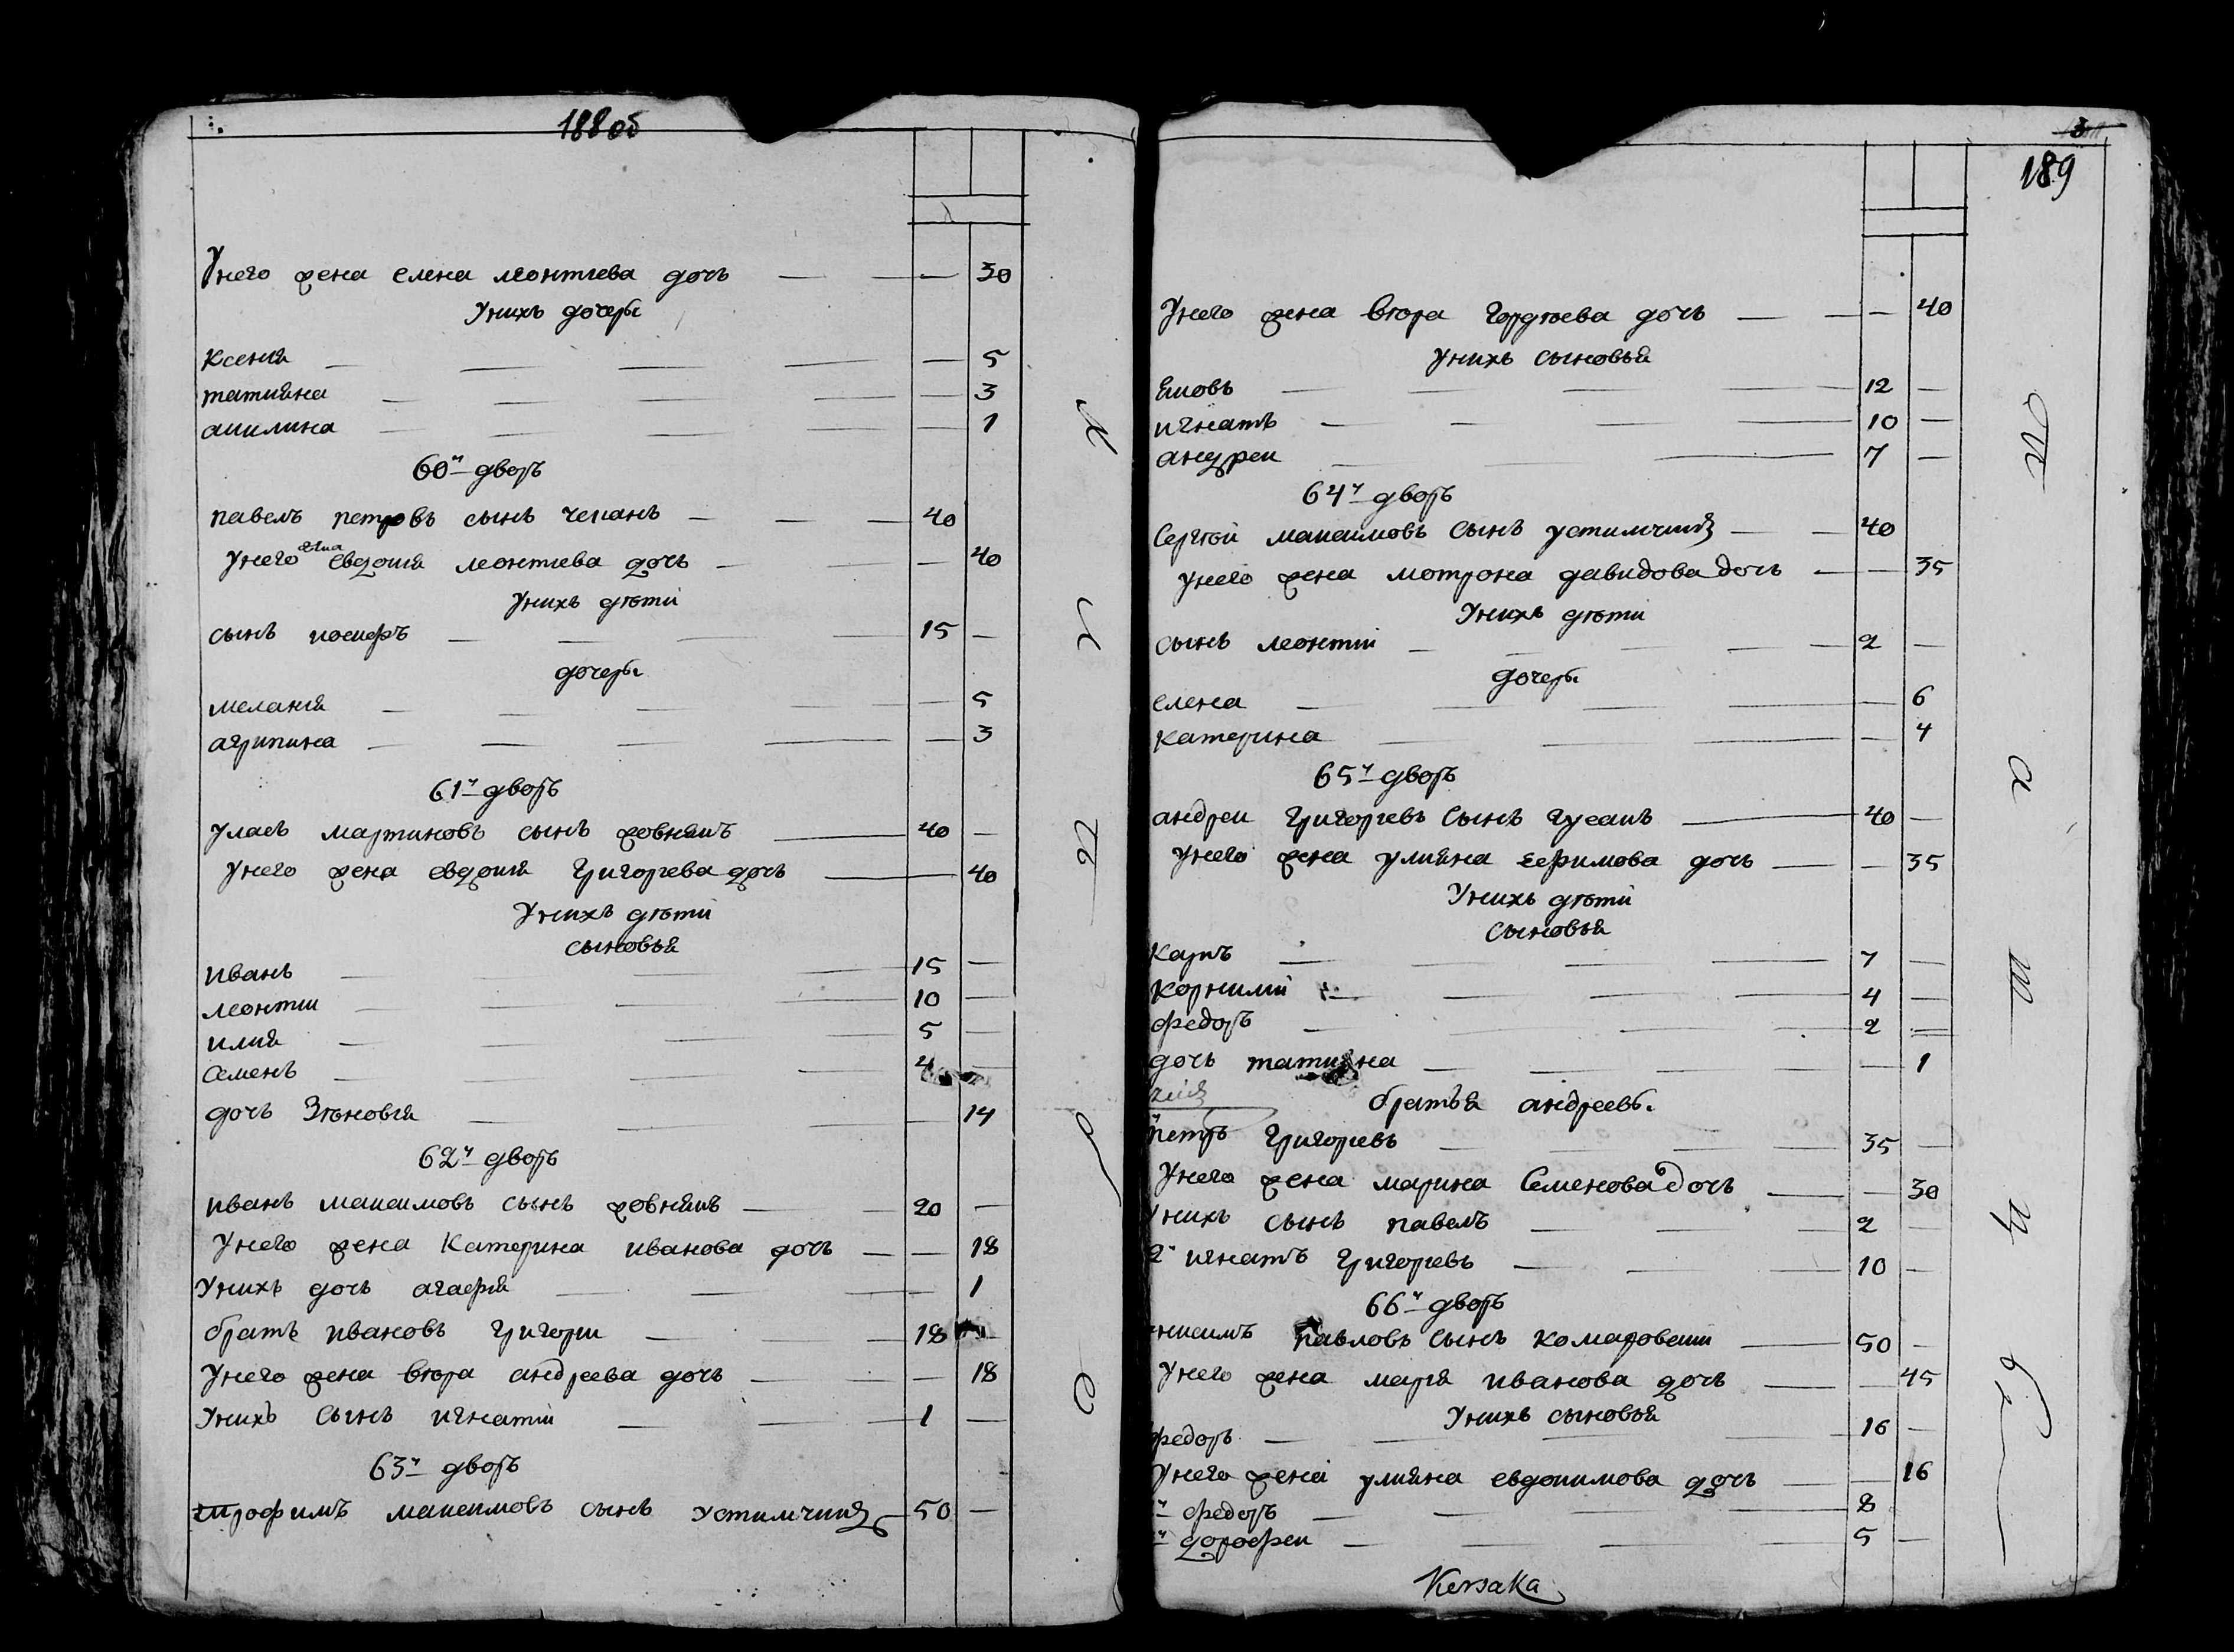 188 об
Унего жена елена леонтиева дочь — — — 30
Унихъ дочеры
Ксения — — — — — 5
татияна — — — — — 3
акилина — — — — — 1
60й дворъ
павелъ петровъ сынъ чепакъ — — — 40
Унего жена евдокия леонтиева дочь — — — 40
Унихъ дѣти
сынъ иосифъ — — — — 15 —
дочеры
мелания — — — — — 5
агрипина — — — — — 3
61й дворъ
уласъ мартиновъ сынъ ровнякъ — 40 —
Унего жена евдокия Григориева дочь — 40
Унихъ дѣти
сыновья
иванъ — — — 15 —
леонтии — — — 10 —
илия — — — 5 —
Семенъ — — — 4 —
дочь Зѣновия — — — — 14
62й дворъ
иванъ макаимовъ сынъ ровнякъ — — 20 —
Унего жена Катерина иванова дочь — — 18
Унихъ дочь агафия — — — 1
братъ ивановъ Григори — — 18 —
Унего жена вѣра андреева дочь — — — 18
Унихъ Сынъ игнатии — — 1 —
63й дворъ
трофимъ максимовъ сынъ устимчикъ 50 —
189
Унего жена вѣра Гордѣева дочь — — — 40
Унихъ сыновья
Яковъ — — — — 12 —
игнатъ — — — — 10 —
андреи — — — 7 —
64й дворъ
Сергѣй макаимовъ Сынъ устимчикъ — — 40
Унего жена мотрона давидова дочь — — 35
Унихъ дѣти
Сынъ леонтий — — — — — 2 —
дочеры
елена — — — — — 6
Катерина — — — — 4
65й дворъ
андреи Григориевъ Сынъ Гусакъ — 40 —
Унего жена улияна ефимова дочь — — 35
Унихъ дѣти
Сыновья
Карпъ — — — — 7 —
Корнилий — — — — 4 —
федоръ — — — 2 —
дочь татияна — — — — 1
братья андреевъ.
петръ Григориевъ — — — 35 —
Унего жена марина Семенова дочь — — 30
Унихъ сынъ павелъ — — — 2 —
2й игнатъ Григориевъ — — — 10 —
66й дворъ
павловъ Сынъ Комаровски — 50 —
Унего жена мария иванова дочь — — 45
Унихъ сыновья
федоръ — — — — 16 —
Унего жена улияна евдокимова дочь — — 16
федоръ — — — 8
дорофеи — — — — 5 —